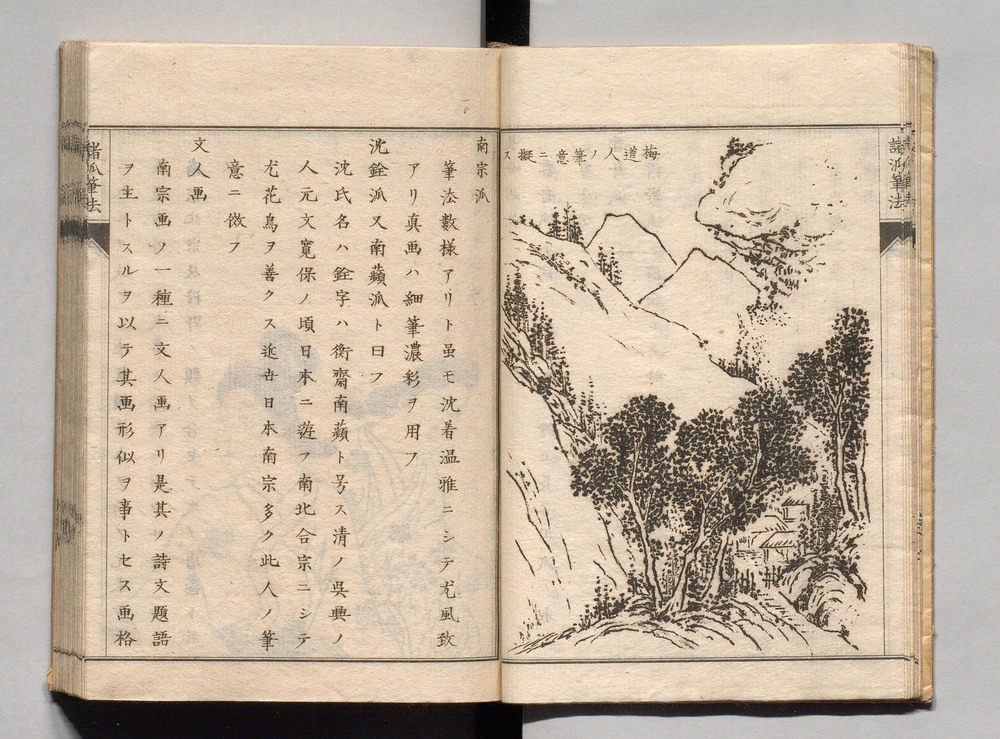 諸派筆法
梅道人ノ筆意ニ擬ス
南宗派
筆法數様アリト虽モ沈着温雅ニシテ尤風致
アリ真画ハ細筆濃彩ヲ用フ
沈銓派又南蘋派ト曰フ
沈氏名ハ銓字ハ衡齋南蘋ト号ス清ノ吳興ノ
人元文寛保ノ頃日本ニ遊フ南北合宗ニシテ
尤花鳥ヲ善クス近古日本南宗多ク此人ノ筆
意ニ倣フ
文人画
南宗画ノ一種ニ文人画アリ是其ノ詩文題語
ヲ主トスルヲ以テ其画形似ヲ事トセス画格
諸派筆法